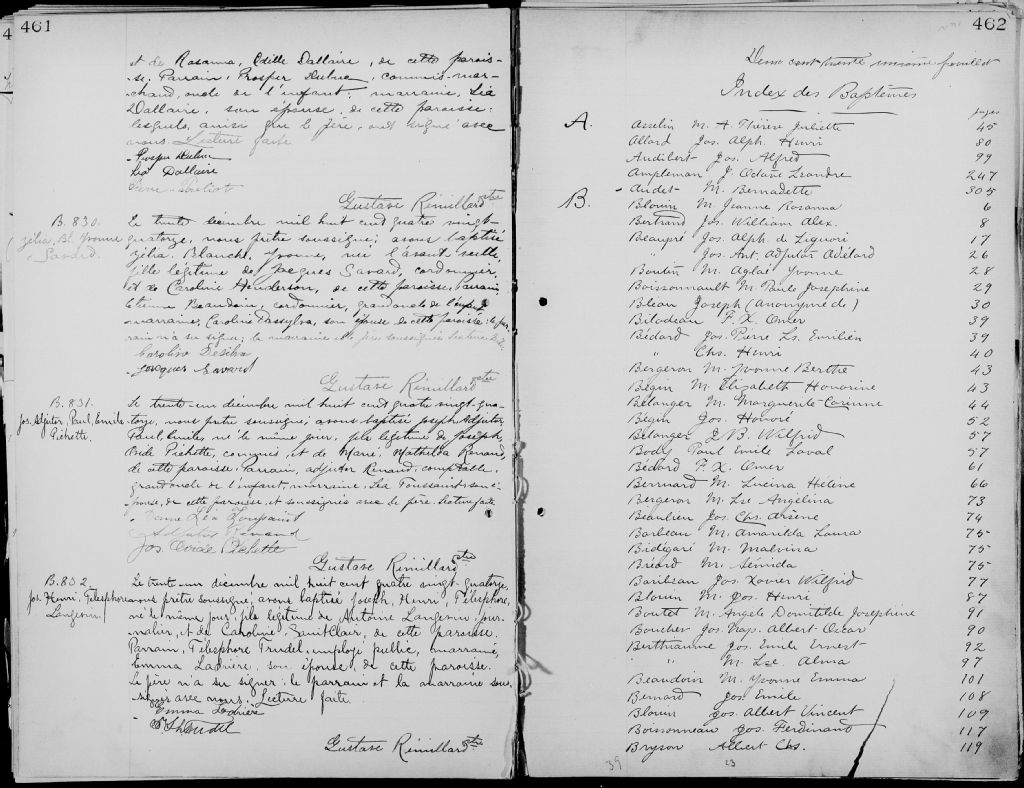 461
et de Rosanna, Odille Dallaire, de cette parois-
-se. Parrain, Prosper Dubuc, commis-mar-
chand, oncle de l'enfant; marraine, Léa
Dallaire, son épouse, de cette paroisse:
lesquels, ainsi que le père, ont signé avec
nous. Lecture faite
Prosper Dubuc
Léa Dallaire
Gustave Rémillard ptre
B. 830.
Zélia, Bl. Yvonne
Savard.
Le trente décembre mil huit cent quatre vingt-
quatorze, nous prêtre soussigné, avons baptisé
Zélia, Blanche, Yvonne, née l'avant veille,
fille légitime de Jacques Savard, cordonnier,
et de Caroline Henderson, de cette paroisse. Parrain,
Etienne Beaudoin, cordonnier, grand oncle de l'enfant;
marraine, Caroline Dassylva, son épouse de cette paroisse: le par-
rain n'a su signer; la marraine et le père soussignés. Lecture faite
Caroline Desilva
Jacques Savard
Gustave Rémillard ptre
B. 831.
Jos. Adjutor, Paul, Emile
Pichette.
Le trente-un décembre mil huit cent quatre vingt-qua-
torze, nous prêtre soussigné, avons baptisé Joseph, Adjutor,
Paul, Emile, né le même jour, fils légitime de Joseph,
Ovide Pichette, commis, et de Marie, Mathilda Renaud,
de cette paroisse. Parrain, Adjutor Renaud, comptable,
grand oncle de l'enfant; marraine, Léa Toussaint, son é-
pouse, de cette paroisse, et soussignés avec le père. Lecture faite
Dame Léa Toussaint
Adjutor Renaud
Jos. Ovide Pichette
Gustave Rémillard ptre
B. 832
Jos. Henri, Télesphore
Langevin.
Le trente-un décembre mil huit cent quatre vingt-quatorze,
nous prêtre soussigné, avons baptisé Joseph, Henri, Télesphore,
né le même jour, fils légitime de Antoine Langevin, jour-
nalier, et de Caroline Saint Clair, de cette paroisse.
Parrain, Télesphore Trudel, employé public, marraine,
Emma Ladrière, son épouse, de cette paroisse.
Le père n'a su signer: le parrain et la marraine sous-
signés avec nous. Lecture faite.
Emma Ladrière
T. Trudel
Gustave Rémillard ptre
462
Deux cent trente unième feuillet
Index des Baptêmes
pages
A. Asselin M. A. Thérèse Juliette 45
Allard Jos. Alph. Henri 80
Audibert Jos. Alfred 99
Ampleman J. Octave Léandre 247
Audet M. Bernadette 305
B. Blouin M. Jeanne Rosanna 6
Bertrand Jos. William Alex. 8
Beaupré Jos. Alph. de Liguori 17
" Jos. Ant. Adjutor Adélard 26
Boutin M. Aglaé Yvonne 28
Boissonnault M. Paule Josephine 29
Bleau Joseph (Anonyme de) 30
Bilodeau F. X. Omer 39
Bédard Jos. Pierre Ls. Emilien 39
" Chs. Henri 40
Bergeron M. Yvonne Berthe 43
Bégin M. Elizabeth Honorine 43
Bélanger M. Marguerite-Corinne 44
Bégin Jos. Honoré 52
Bélanger J. B. Wilfrid 57
Body Paul Emile Laval 57
Bédard F. X. Omer 61
Bernard M. Lucina Hélène 66
Bergeron M. Lse. Angélina 73
Beaulieu Jos. Chs. Arsène 74
Barbeau M. Amarilda Laura 75
Bidégaré M. Malvina 75
Briard M. Lénida 75
Baribeau Jos. Xavier Wilfrid 77
Blouin M. Jos. Henri 87
Boutet M. Angèle Domitilde Josephine 91
Boucher Jos. Nap. Albert Oscar 90
Berthiaume Jos. Emile Ernest 92
" M. Lse. Alma 97
Beaudoin M. Yvonne Emma 101
Bernard Jos. Emile 108
Blouin Jos. Albert Vincent 109
Boissonneau Jos. Ferdinand 117
Bryson Albert Chs. 119
39 23